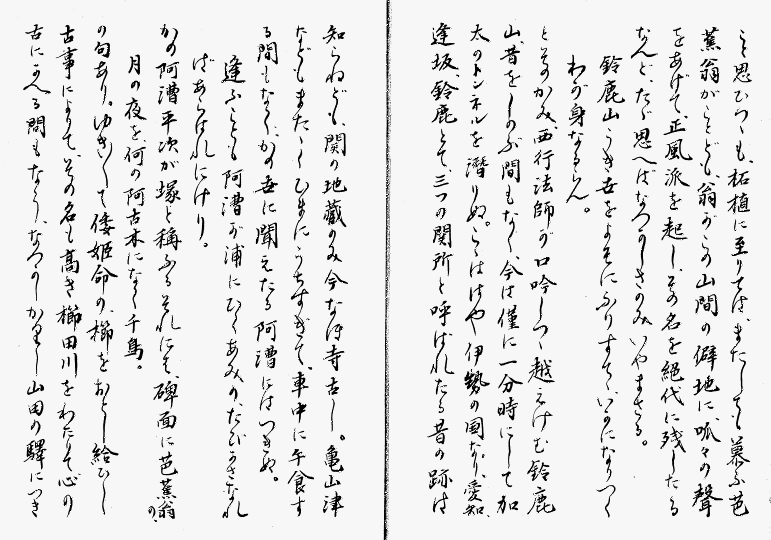 と思ひつゝも、柘植に至りては、またしても慕ふ芭
蕉翁がことども、翁がこの山間の僻地に、呱々の聲
をあげて、正風派を起し、その名を絶代に残したる
なんど、たゞ思へばなつかしさのみいやまさる。
鈴鹿山うき世をよそにふりすていかになりゆく
わが身なるらん。
とそのかみ、西行法師が口吟しつゝ越えけむ鈴鹿
山、昔をしのぶ間もなく、今は僅に一分時にして加
太のトンネルを潜りぬ。こゝははや伊勢の国なり、愛知、
逢坂、鈴鹿とて、三つの関所と呼ばれたる昔の跡は
知らねども、関の地蔵のみ今なほ寺古し。亀山津
などもまたゝくひまにうちすぎて、車中に午食す
る間もなく、かの世に聞えたる阿漕にはつきぬ。
逢ふことも阿漕が浦にひくあみのたびかさなれ
ばあらはれにけり。
かの阿漕平次が塚と稱ふるそれにも、碑面に芭蕉翁の、
月の夜を何の阿古木になく千鳥。
の句あり。ゆきゆきて倭姫命の、櫛をおとし給ひし
古事によりて、その名も高き櫛田川をわたりて心の
古にかへる間もなく、なつかしかりし山田の驛につき